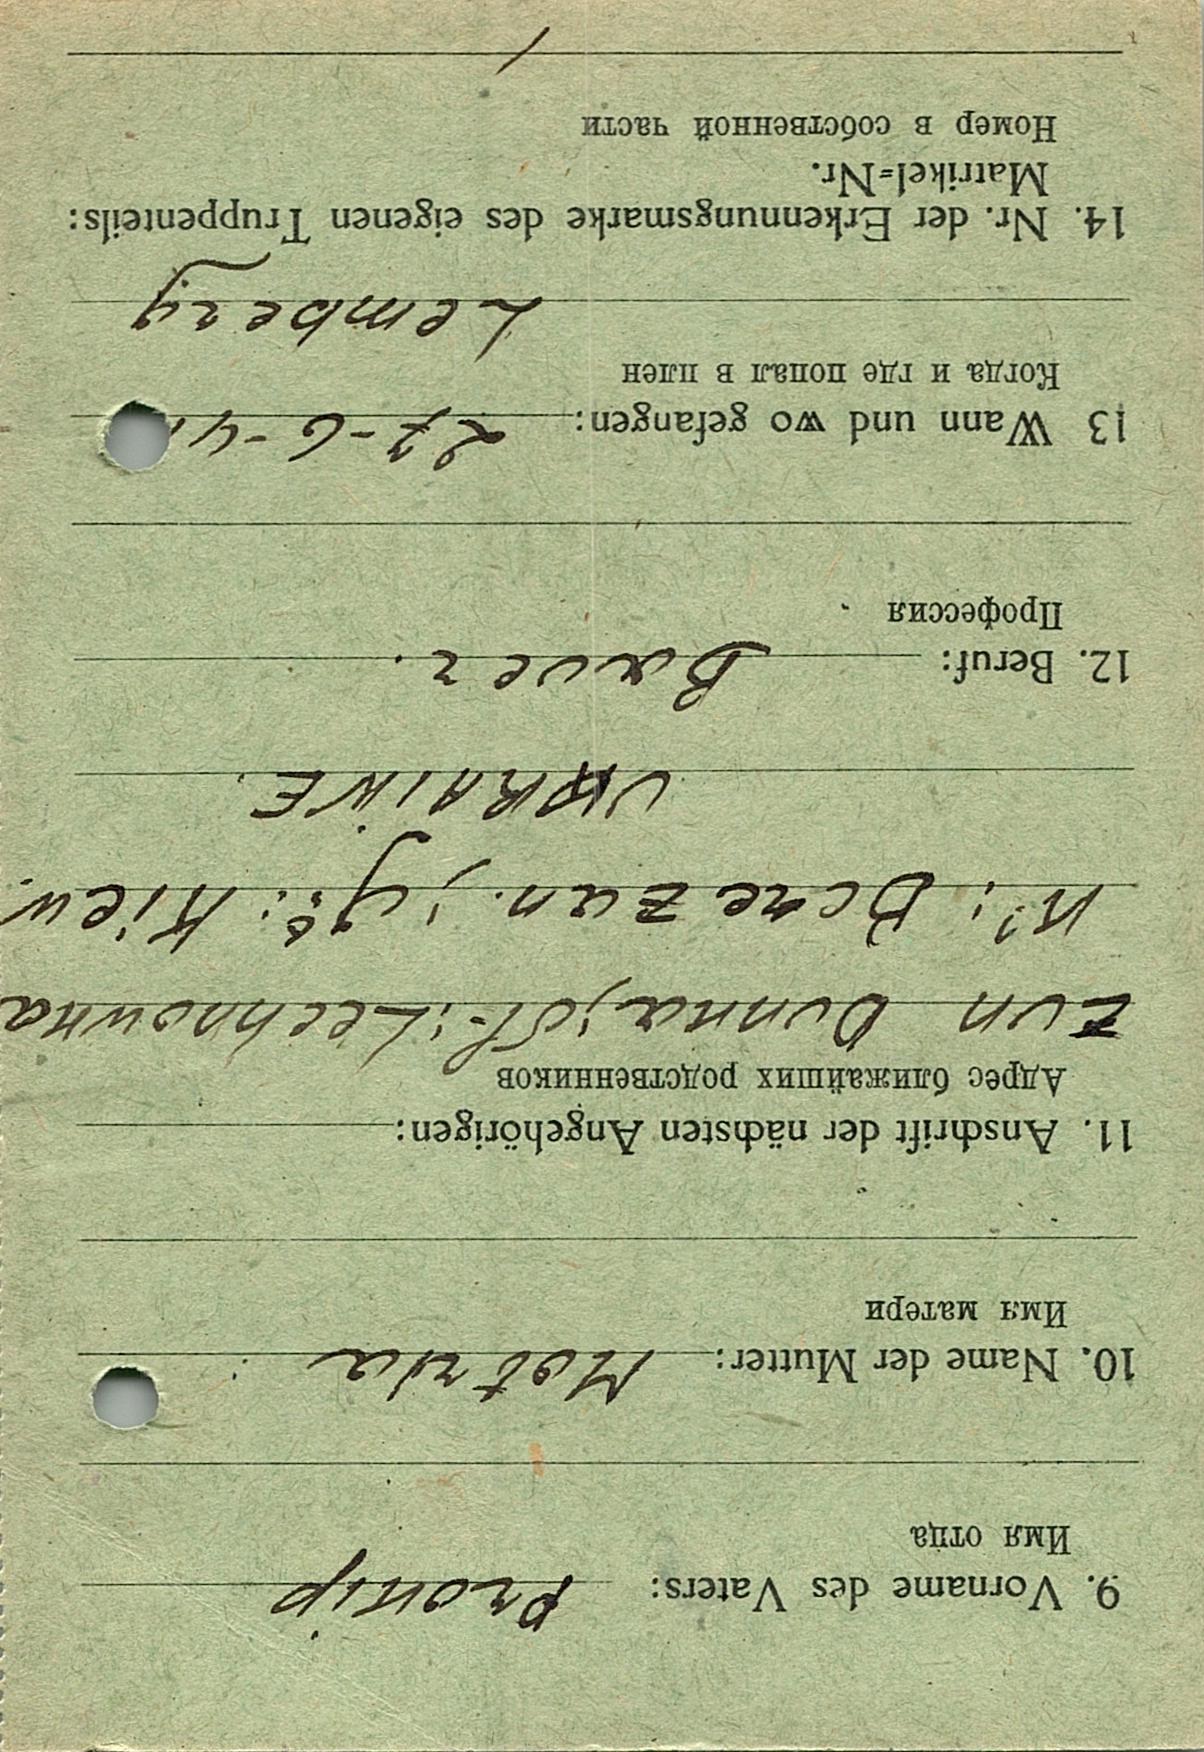 9. Vorname des Vaters: Prokip
Имя отца
10. Name der Mutter: Motria
Имя матери
11. Anschrift der nächsten Angehörigen:
Адрес ближайших родственников
Zun Dunna; st.: Lechnowna
n: Berezan.; g: Kiew.
UKRAINE.
12. Beruf: Bauer.
Профессия
13 Wann und wo gefangen: 27-6-41
Когда и где попал в плен
Lemberg
14. Nr. der Erkennungsmarke des eigenen Truppenteils:
Matrikel=Nr.
Номер в собственной части
/